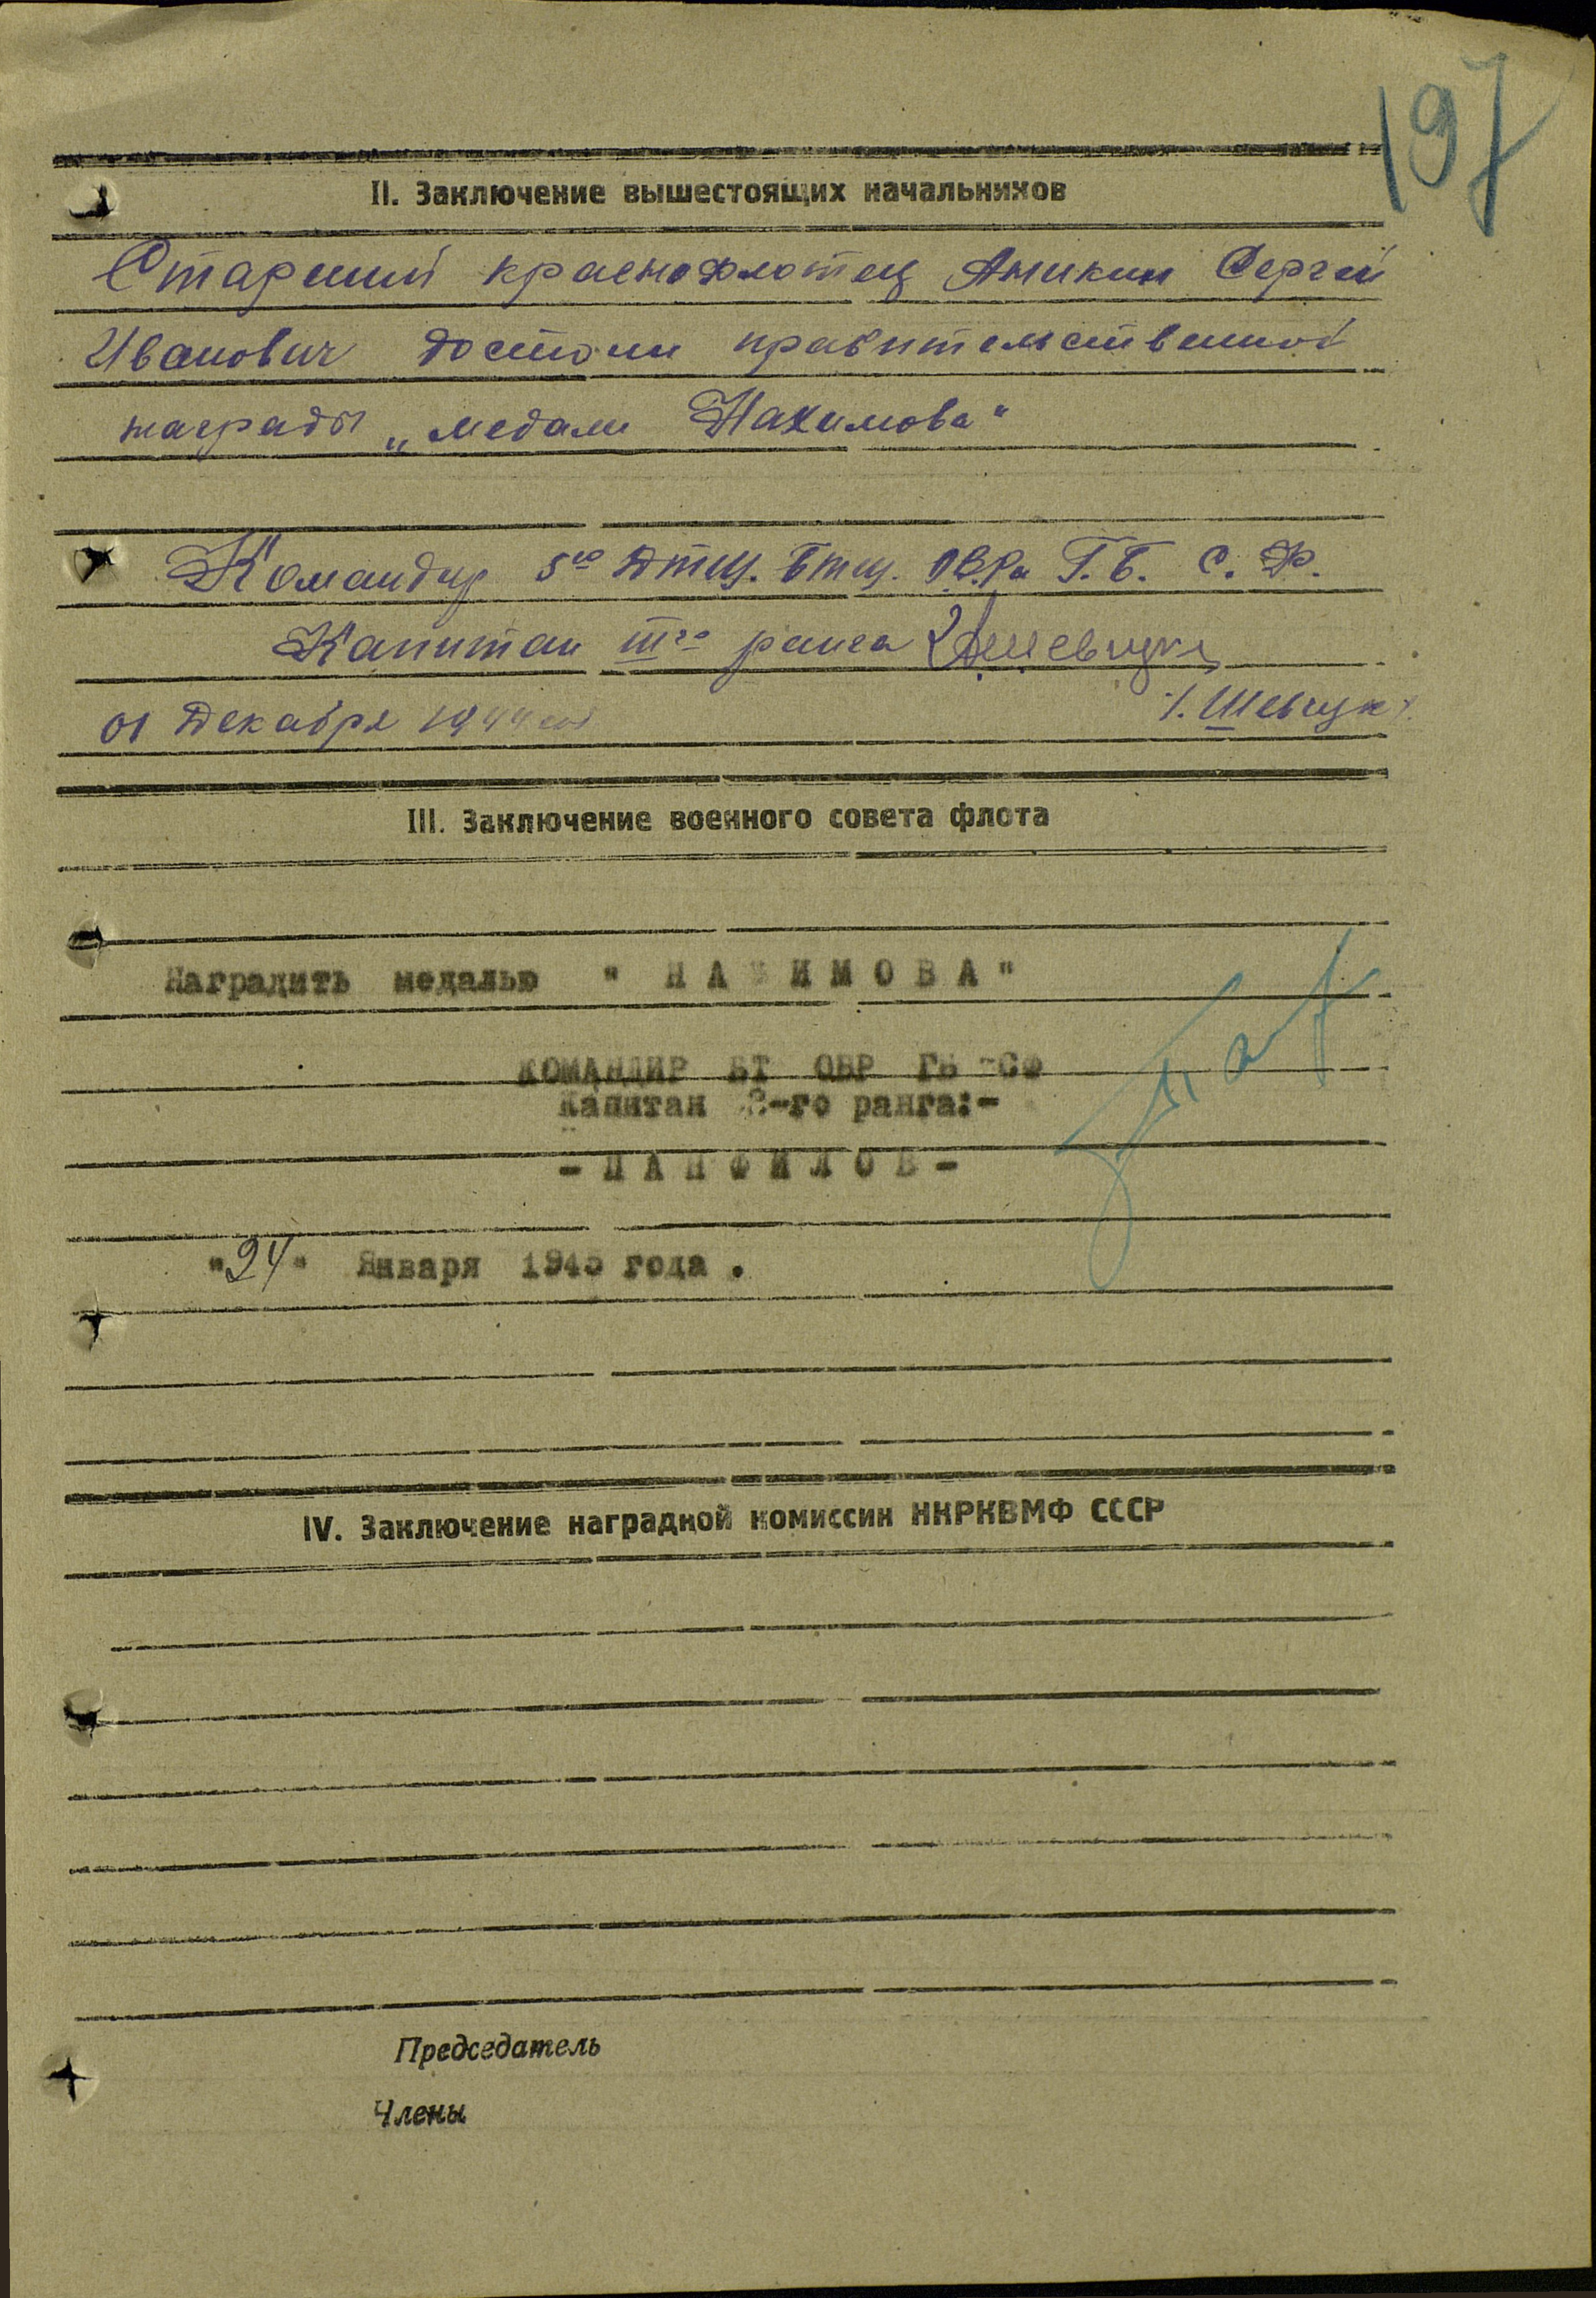 197
II. Заключение вышестоящих начальников
Старший краснофлотец Аникин Сергей
Иванович достоин правительственной
награды „медали Нахимова"
Командир 5го Дтщ. Бтщ. ОВРа Г.Б. С.Ф.
Капитан III го ранга Шевчук
/. Шевчук /.
01 Декабря 1944
III. Заключение военного совета флота
Наградить медалью " НАХИМОВА"
КОМАНДИР БТ ОВР ГБ СФ
Капитан 2-го ранга:-
- ПАНФИЛОВ -
"24" Января 1945 года .
IV. Заключение наградной комиссии НКРКВМФ СССР
Председатель
Члены